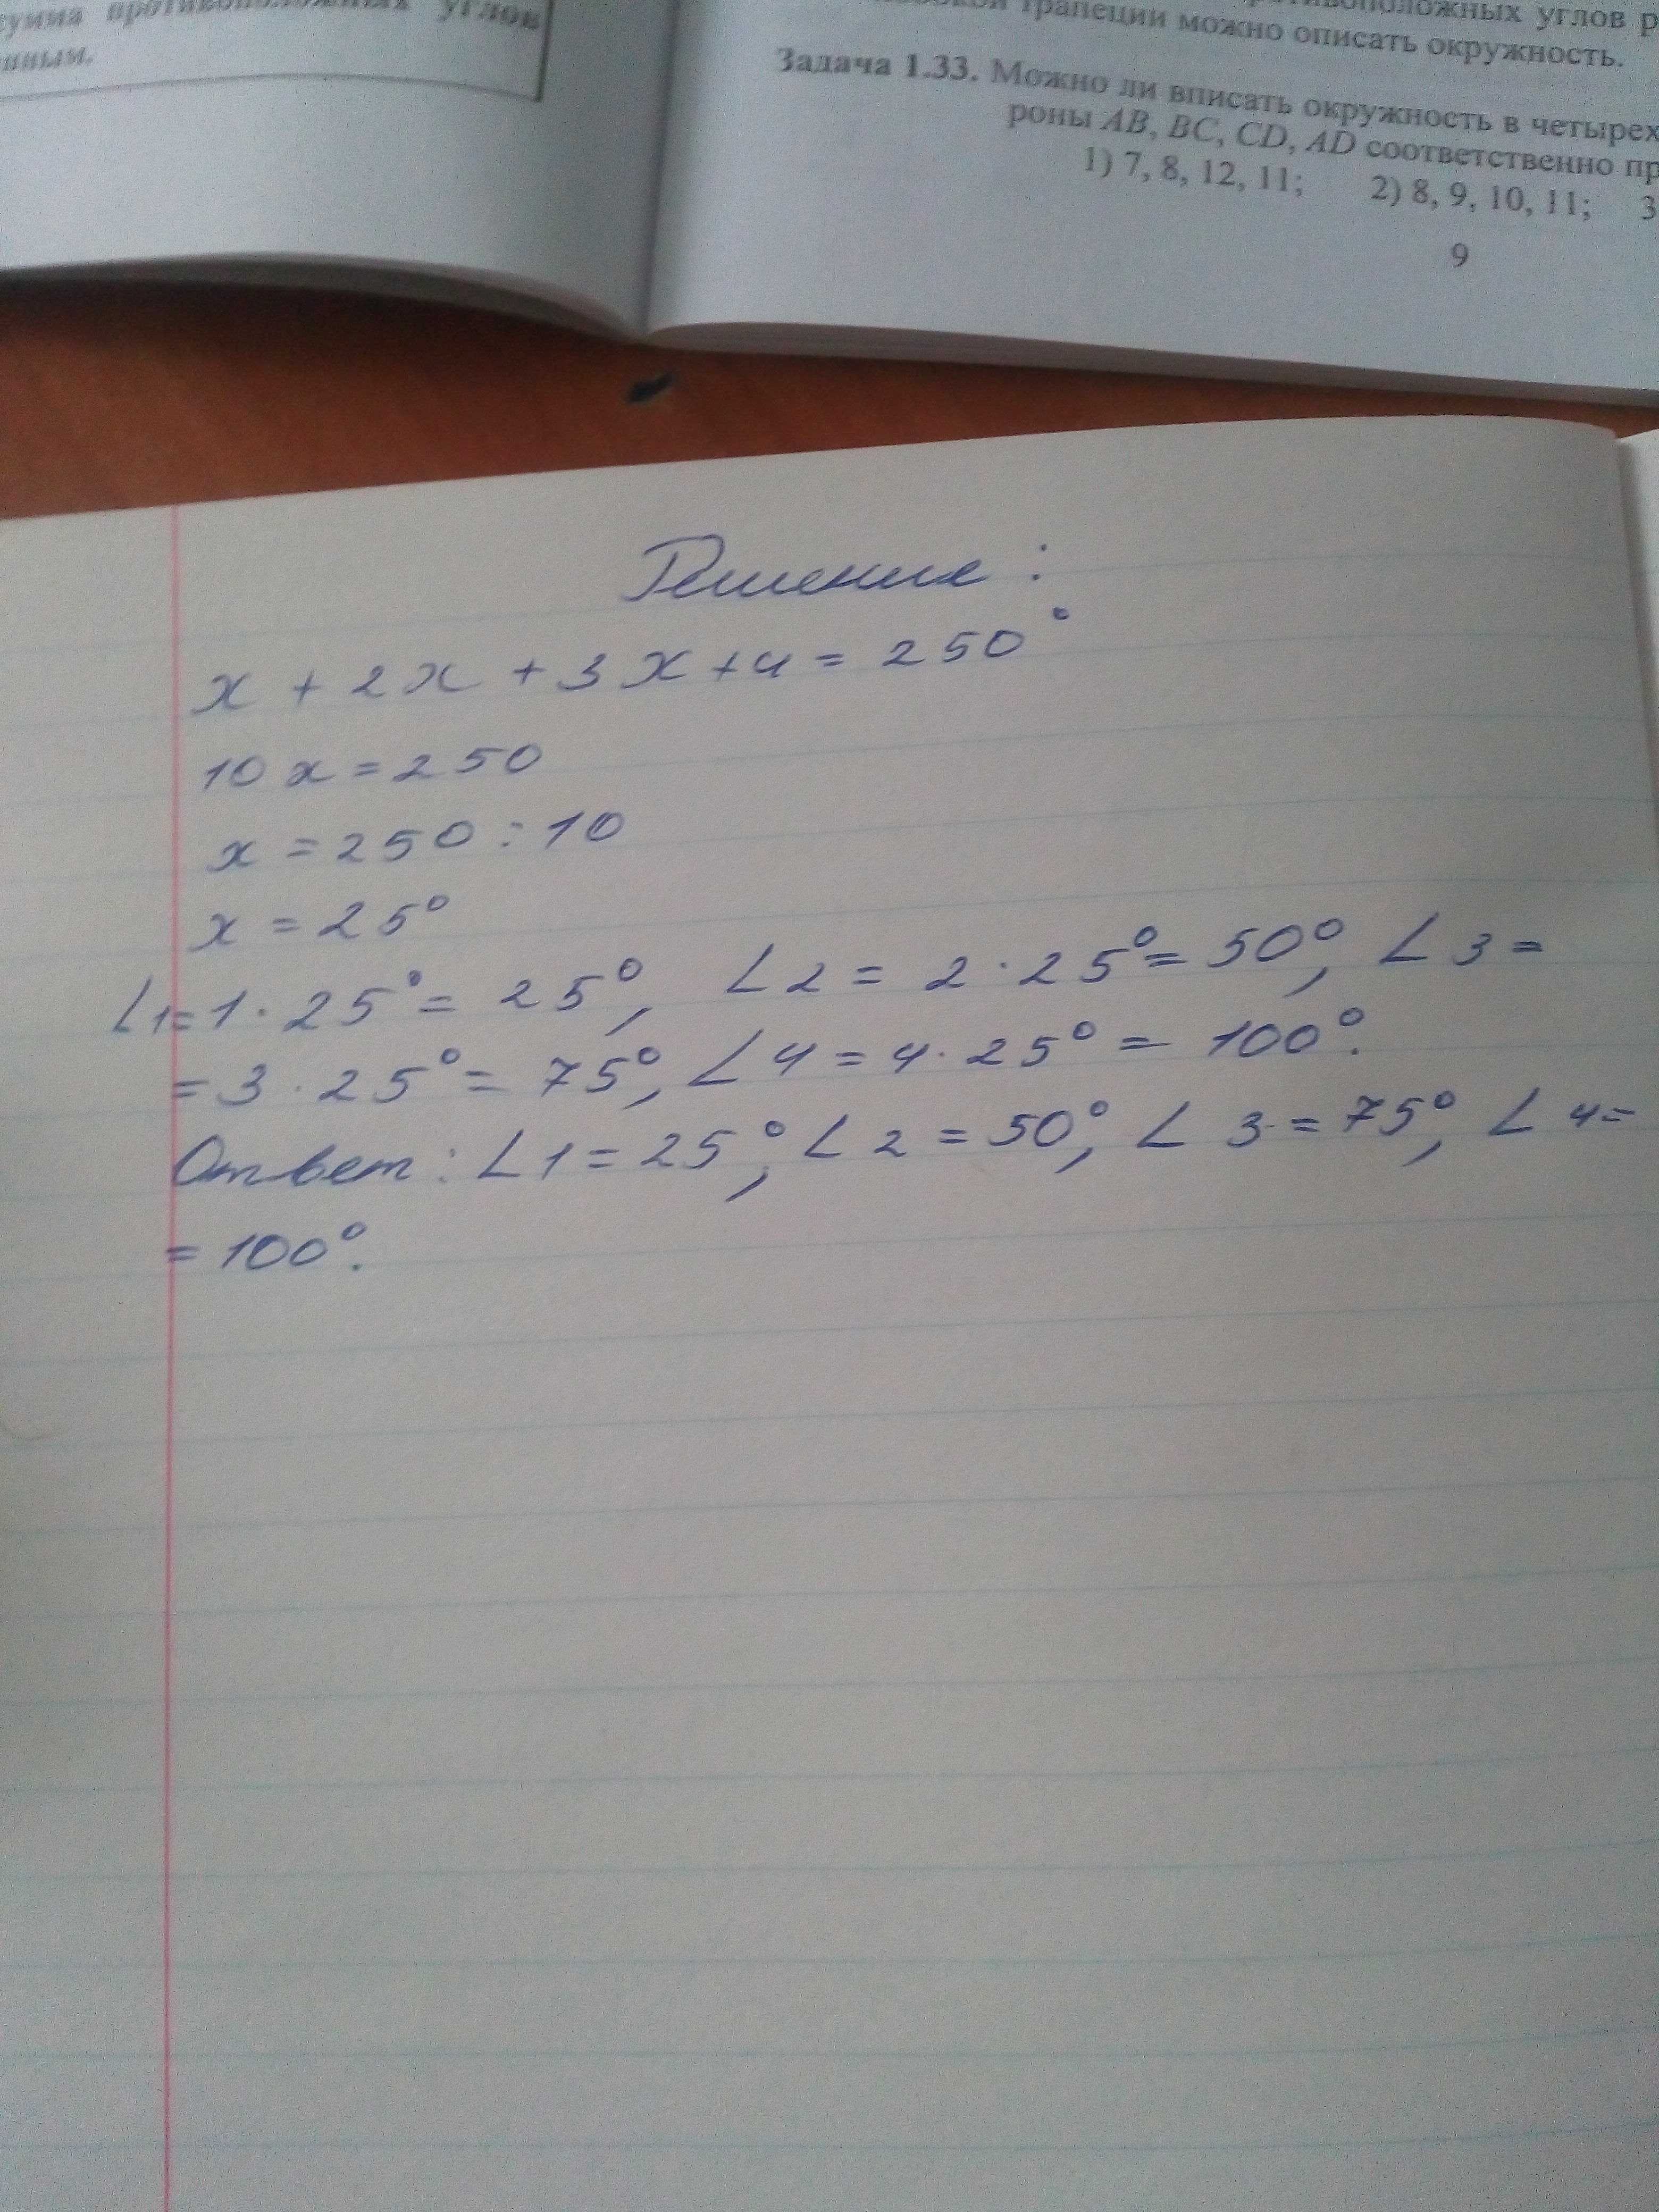 сумма противоположных углов
трапеции можно описать окружность.
Задача 1.33. Можно ли вписать окружность в четырех
роны AB, BC, CD, AD соответственно
1) 7, 8, 12, 11; 2) 8, 9, 10, 11; 3
9
Решение:
x + 2x + 3x + 4 = 250°
10x = 250
x = 250 : 10
x = 25°
∠1 = 1 · 25° = 25°, ∠2 = 2 · 25° = 50°, ∠3 =
= 3 · 25° = 75°, ∠4 = 4 · 25° = 100°.
Ответ: ∠1 = 25°, ∠2 = 50°, ∠3 = 75°, ∠4 =
= 100°.